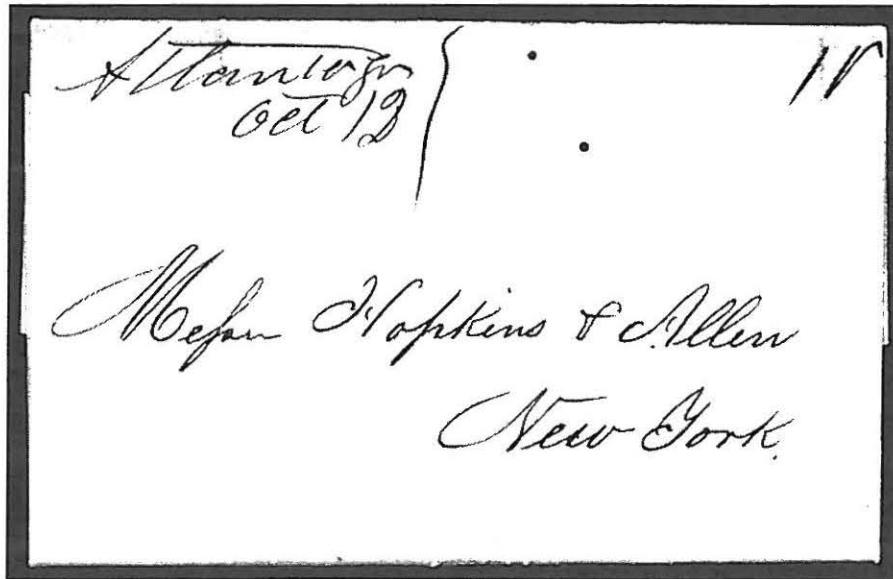 Atlanta Ga
Oct
Messrs Hopkins & Allen
New York.